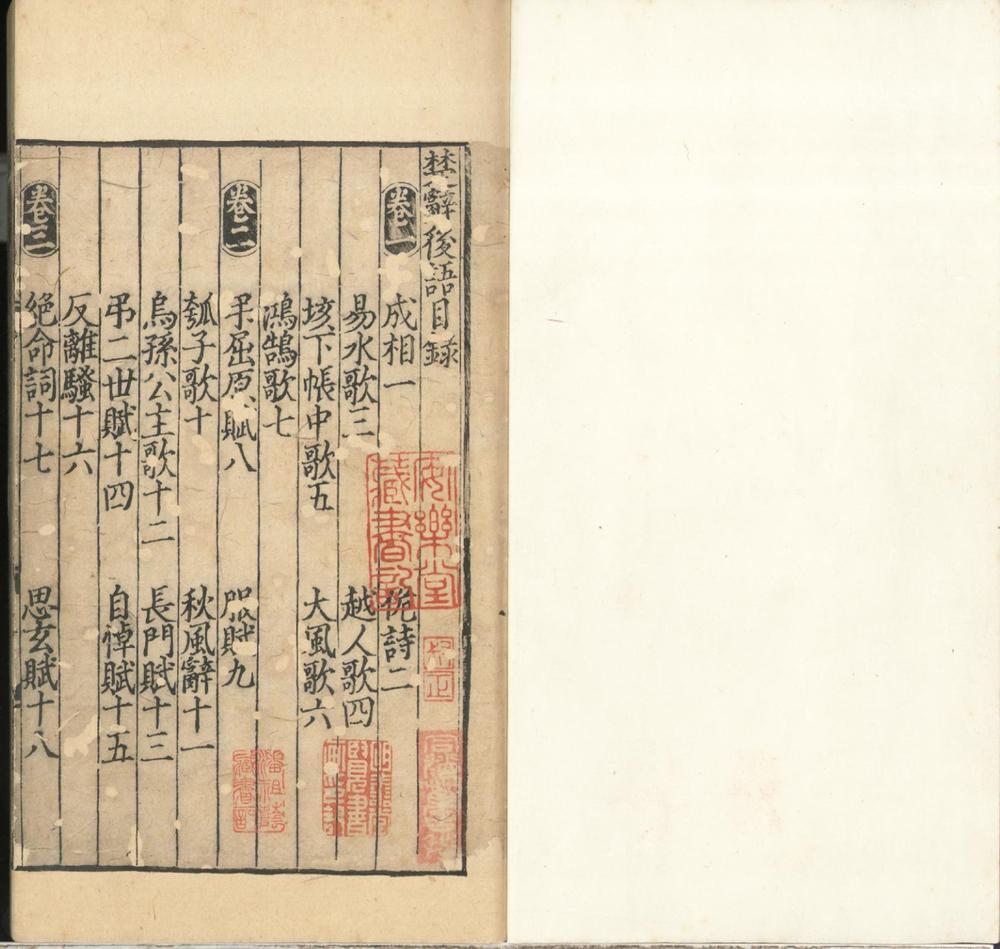 楚辭後語目錄
卷一 成相一 佹詩二
易水歌三 越人歌四
垓下帳中歌五 大風歌六
鴻鵠歌七
卷二 弔屈原賦八 服賦九
瓠子歌十 秋風辭十一
烏孫公主歌十二 長門賦十三
弔二世賦十四 自悼賦十五
反離騷十六
卷三 絕命詞十七 思玄賦十八
樂堂
藏書